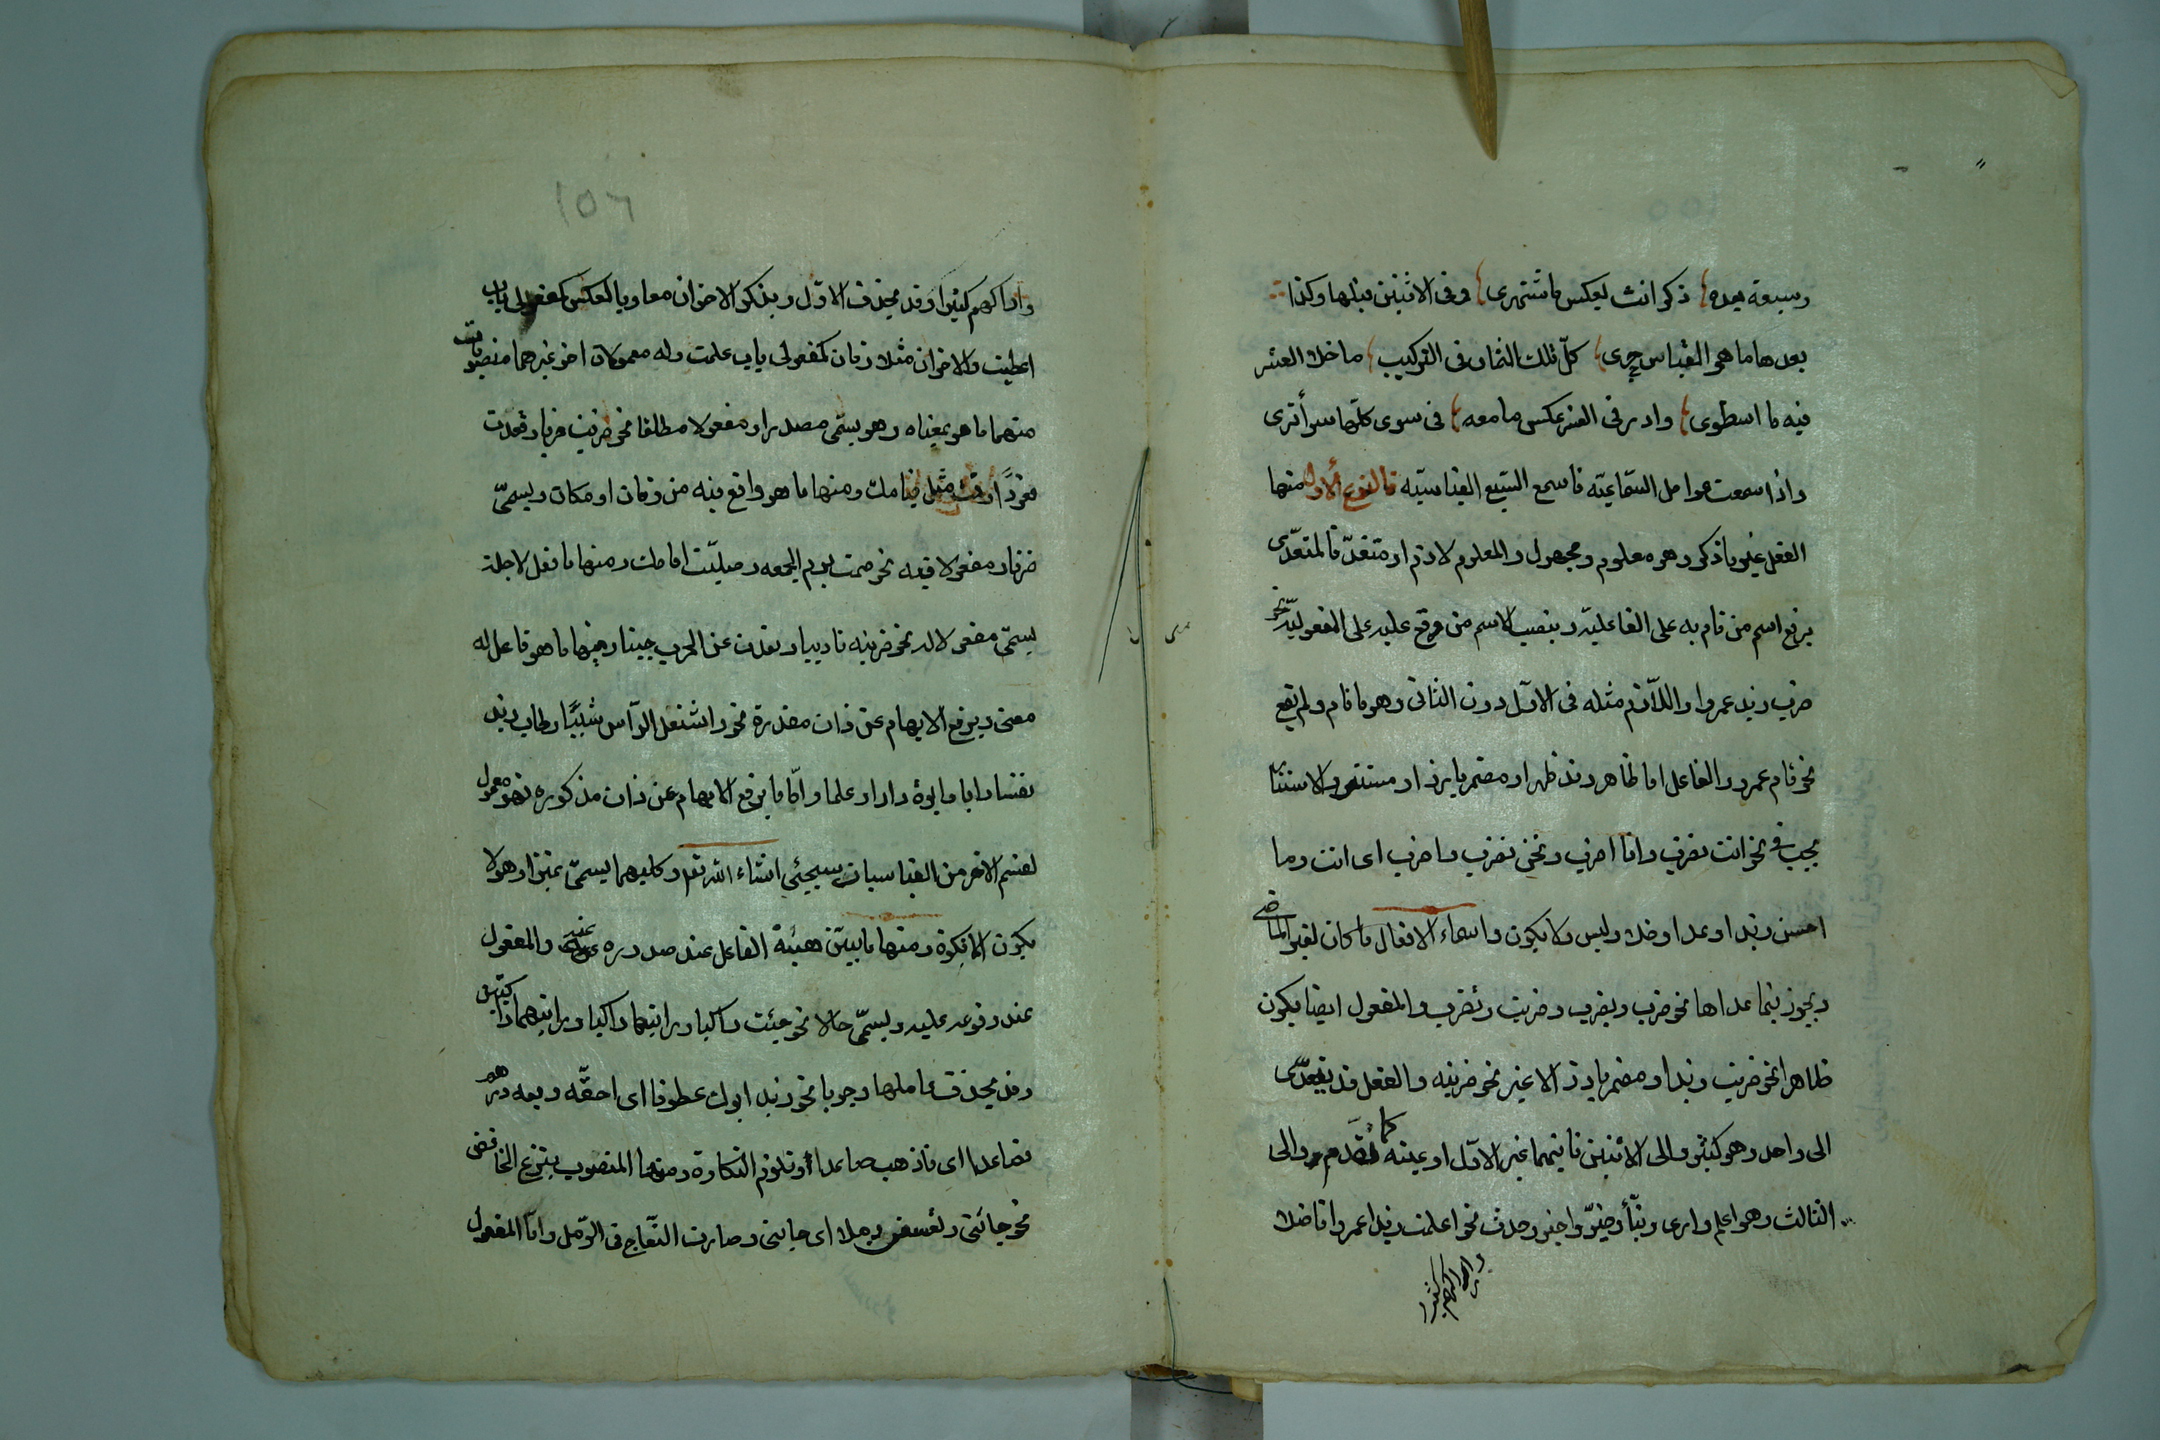 وسبعة بعده ذكر انث بعكس ما شتهرى وفى الاثنين قبلها وكذا
بعدها ما هو القياس جرى كلّ تلك الثمان فى التركيب ما خلا العشر
فيه ما اسطوى وادر فى العشر عكس ما معه فى سوى كلّها سوأ ترى
واذا سمعت عوامل السّماعيّه فاسمع السّبع القياسيّه فالنوع الاول منها
الفعل غير ما ذكر وهو معلوم ومجهول والمعلوم لازم او متعدّ فالمتعدّى
يرفع اسم من قام به على الفاعليّه وينصب الاسم من وقع عليه على المفعوليّة نحو
ضرب زيد عمروا واللّازم مثله فى الاوّل دون الثانى وهو ما قام ولم يقع
نحو قام عمرو والفاعل اما ظاهر وقد ظهر او مضمر بارز او مستتر والاستتار
يجب فى نحو انت تضرب وانا اضرب ونحن نضرب واضرب اى انت وما
احسن زيدا وعدا وخلا وليس ولا يكون واسماء الافعال ما كان لغير الماضى
ويجوز فيما عداها نحو ضرب ويضرب وضربت وتضرب والمفعول ايضا يكون
ظاهرا نحو ضربت زيدا ومضمر بارز لا غير نحو ضربته والفعل قد يتعدّى
الى واحد وهو كثير والى الاثنين ثانيهما غير الاوّل او عينه كما تقدّم والى
الثالث وهو اعلم وارى ونبّأ وخبّر واخبر وحدث نحو اعلمت زيدا عمروا فاضلا
واراكهم كثيرا
١٥٦
واراكهم كثيرا وقد يحذف الاوّل ويذكر الاخران معا وبالعكس كمفعولى باب
اعطيت والاخران مثلا زمان كمفعولى باب علمت وله معمولات اخر غيرهما منصوبات
منهما ما هو بمعناه وهو يسمّى مصدرا ومفعولا مطلقا نحو ضربت ضربا وقعدت
ومنها ما هو واقع فيه من زمان او مكان ويسمّى
ظرفا ومفعولا فيه نحو صمت يوم الجمعه وصلّيت امامك ومنها ما فعل لاجله
يسمّى مفعولا له نحو ضربته تاديبا وقعدت عن الحرب جبنا ومنها ما هو فاعل له
معنى ويرفع الابهام عن ذات مقدرة نحو واشتعل الرّاس شيبًا وطاب زيد
نفسا وابا وابوة ودارا وعلما وامّا ما يرفع الابهام عن ذات مذكوره فهو معمول
لقسم الاخر من القياسيات سيجئي انشاء الله تعم وكليهما يسمّى تميزا وهو لا
يكون الا نكرة ومنها ما يبيّن هيئة الفاعل عند صدوره عنه والمفعول
عند وقوعه عليه ويسمّى حالا نحو جئت راكبا ورايتهما راكبا ورايتهما راكبين
وقد يحذف عاملها وجوبا نحو زيد ابوك عطوفا اى احقّه وبعه درهم
فصاعدا اى فاذهب صاعدا وتلزم النكارة ومنها المنصوب بنزع الخافض
نحو جائنى اى جائنى وصارت فى الرّمل وامّا المفعول